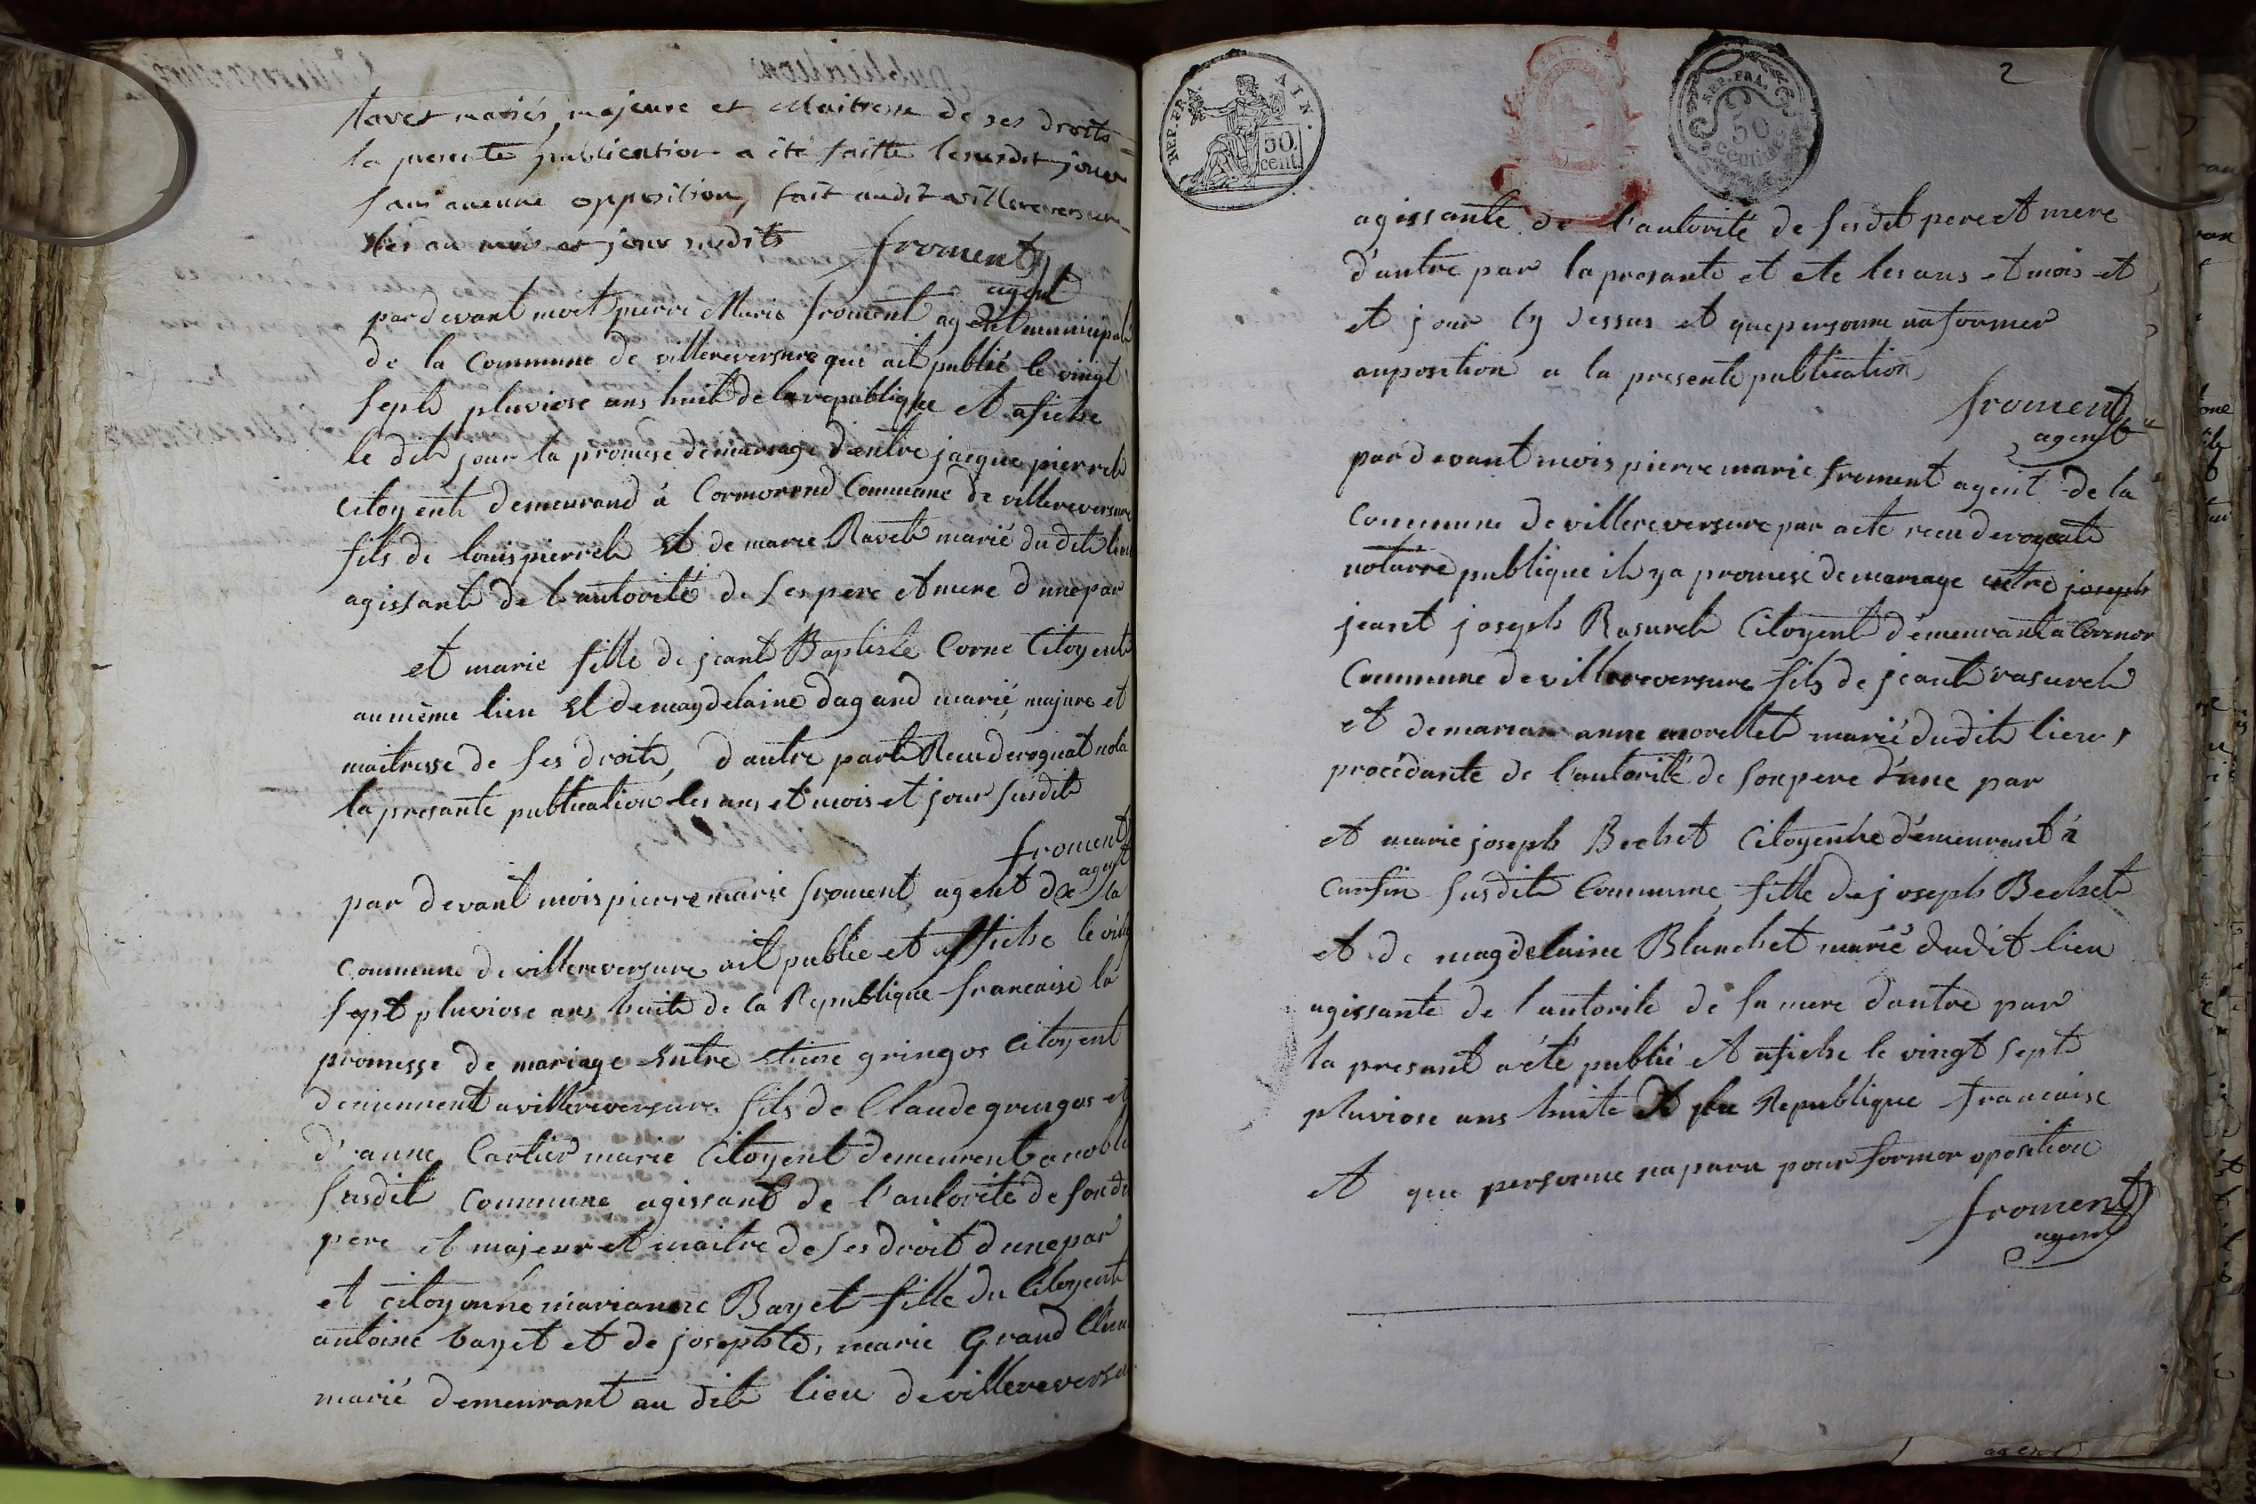 mariés, majeure et Maitresse de ses droits
la presente publication a été faitte le susdit jour
sans aucune opposition, fait audit villereversure
les an mois et jour susdits froment
agent
par devant moit pierre Marie froment agent municipal
de la Commune de villereversure que ait publié le vingt
septs pluviose ans huit de la republique et afiche
le dit jour la promese de mariage d'entre jacque pierreli
Citoyents demeurand à Cormorend Commune de villereversure
fils de louis pierreli et de marie Raveli marié du dit lieu
agissant de l'autorité de ses pere et mere d'une par
et marie fille de jeant Baptiste Corne Citoyent
au même lieu et de magdelaine dagand marié, majure et
maitresse de ses droits, d'autre part Recu derognat nota
la presante publication les ans et mois et jour susdit
froment
agent
par devant mois pierre marie froment agent de la
commune de villereversure ait publié et affiche le vingt
sept pluviose ans huite de la Republique francaise la
promesse de mariage entre etiene gringos Citoyent
demeurent a villereversure fils de Claude gringos et
d'anne Cartier marié Citoyent demeurent a noble
susdit Commune agissant de l'autorité de son dit
père et majeur et maitre de ses droit d'une par
et citoyenne marianne Bayet fille du Citoyent
antoine bayet et de josephte, marie Grand Clem
marié demeurant au dit lieu de villereversure
REP. FRA. AIN.
50 cent.
REP. FRA.
50 centimes
2
agissante de l'autorité de sesdit pere et mere
d'autre par la presante et ete les ans et mois et
et jour cy dessus et que personne na former
auposition a la presente publication
froment
agent
par devant mois pierre marie froment agent de la
Commune de villereversure par acte recu derognat
notarre publique il y a promese de mariage entre joseph
jeant joseph Rasureli Citoyent demeurant a Cormor
Commune de villereversure fils de jeant rasureli
et de marian anne morellet marié dudit lieu,
procédante de l'autorité de son pere d'une par
et marie joseph Bechet Citoyenne demeurant à
Cunfin susdit Commune, fille de joseph Bechet
et de magdelaine Blanchet marié dudit lieu
agissante de l'autorite de sa mere dautre par
la presant a été publié et afiche le vingt septs
pluviose ans huite de la Republique francaise
et que personne na paru pour former oposition
froment
agent